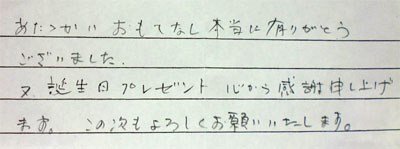 あたゝかい おもてなし 本当に有りがとう
ございました.
又、誕生日プレゼント 心から感謝申し上げ
ます。この次もよろしくお願いいたします。